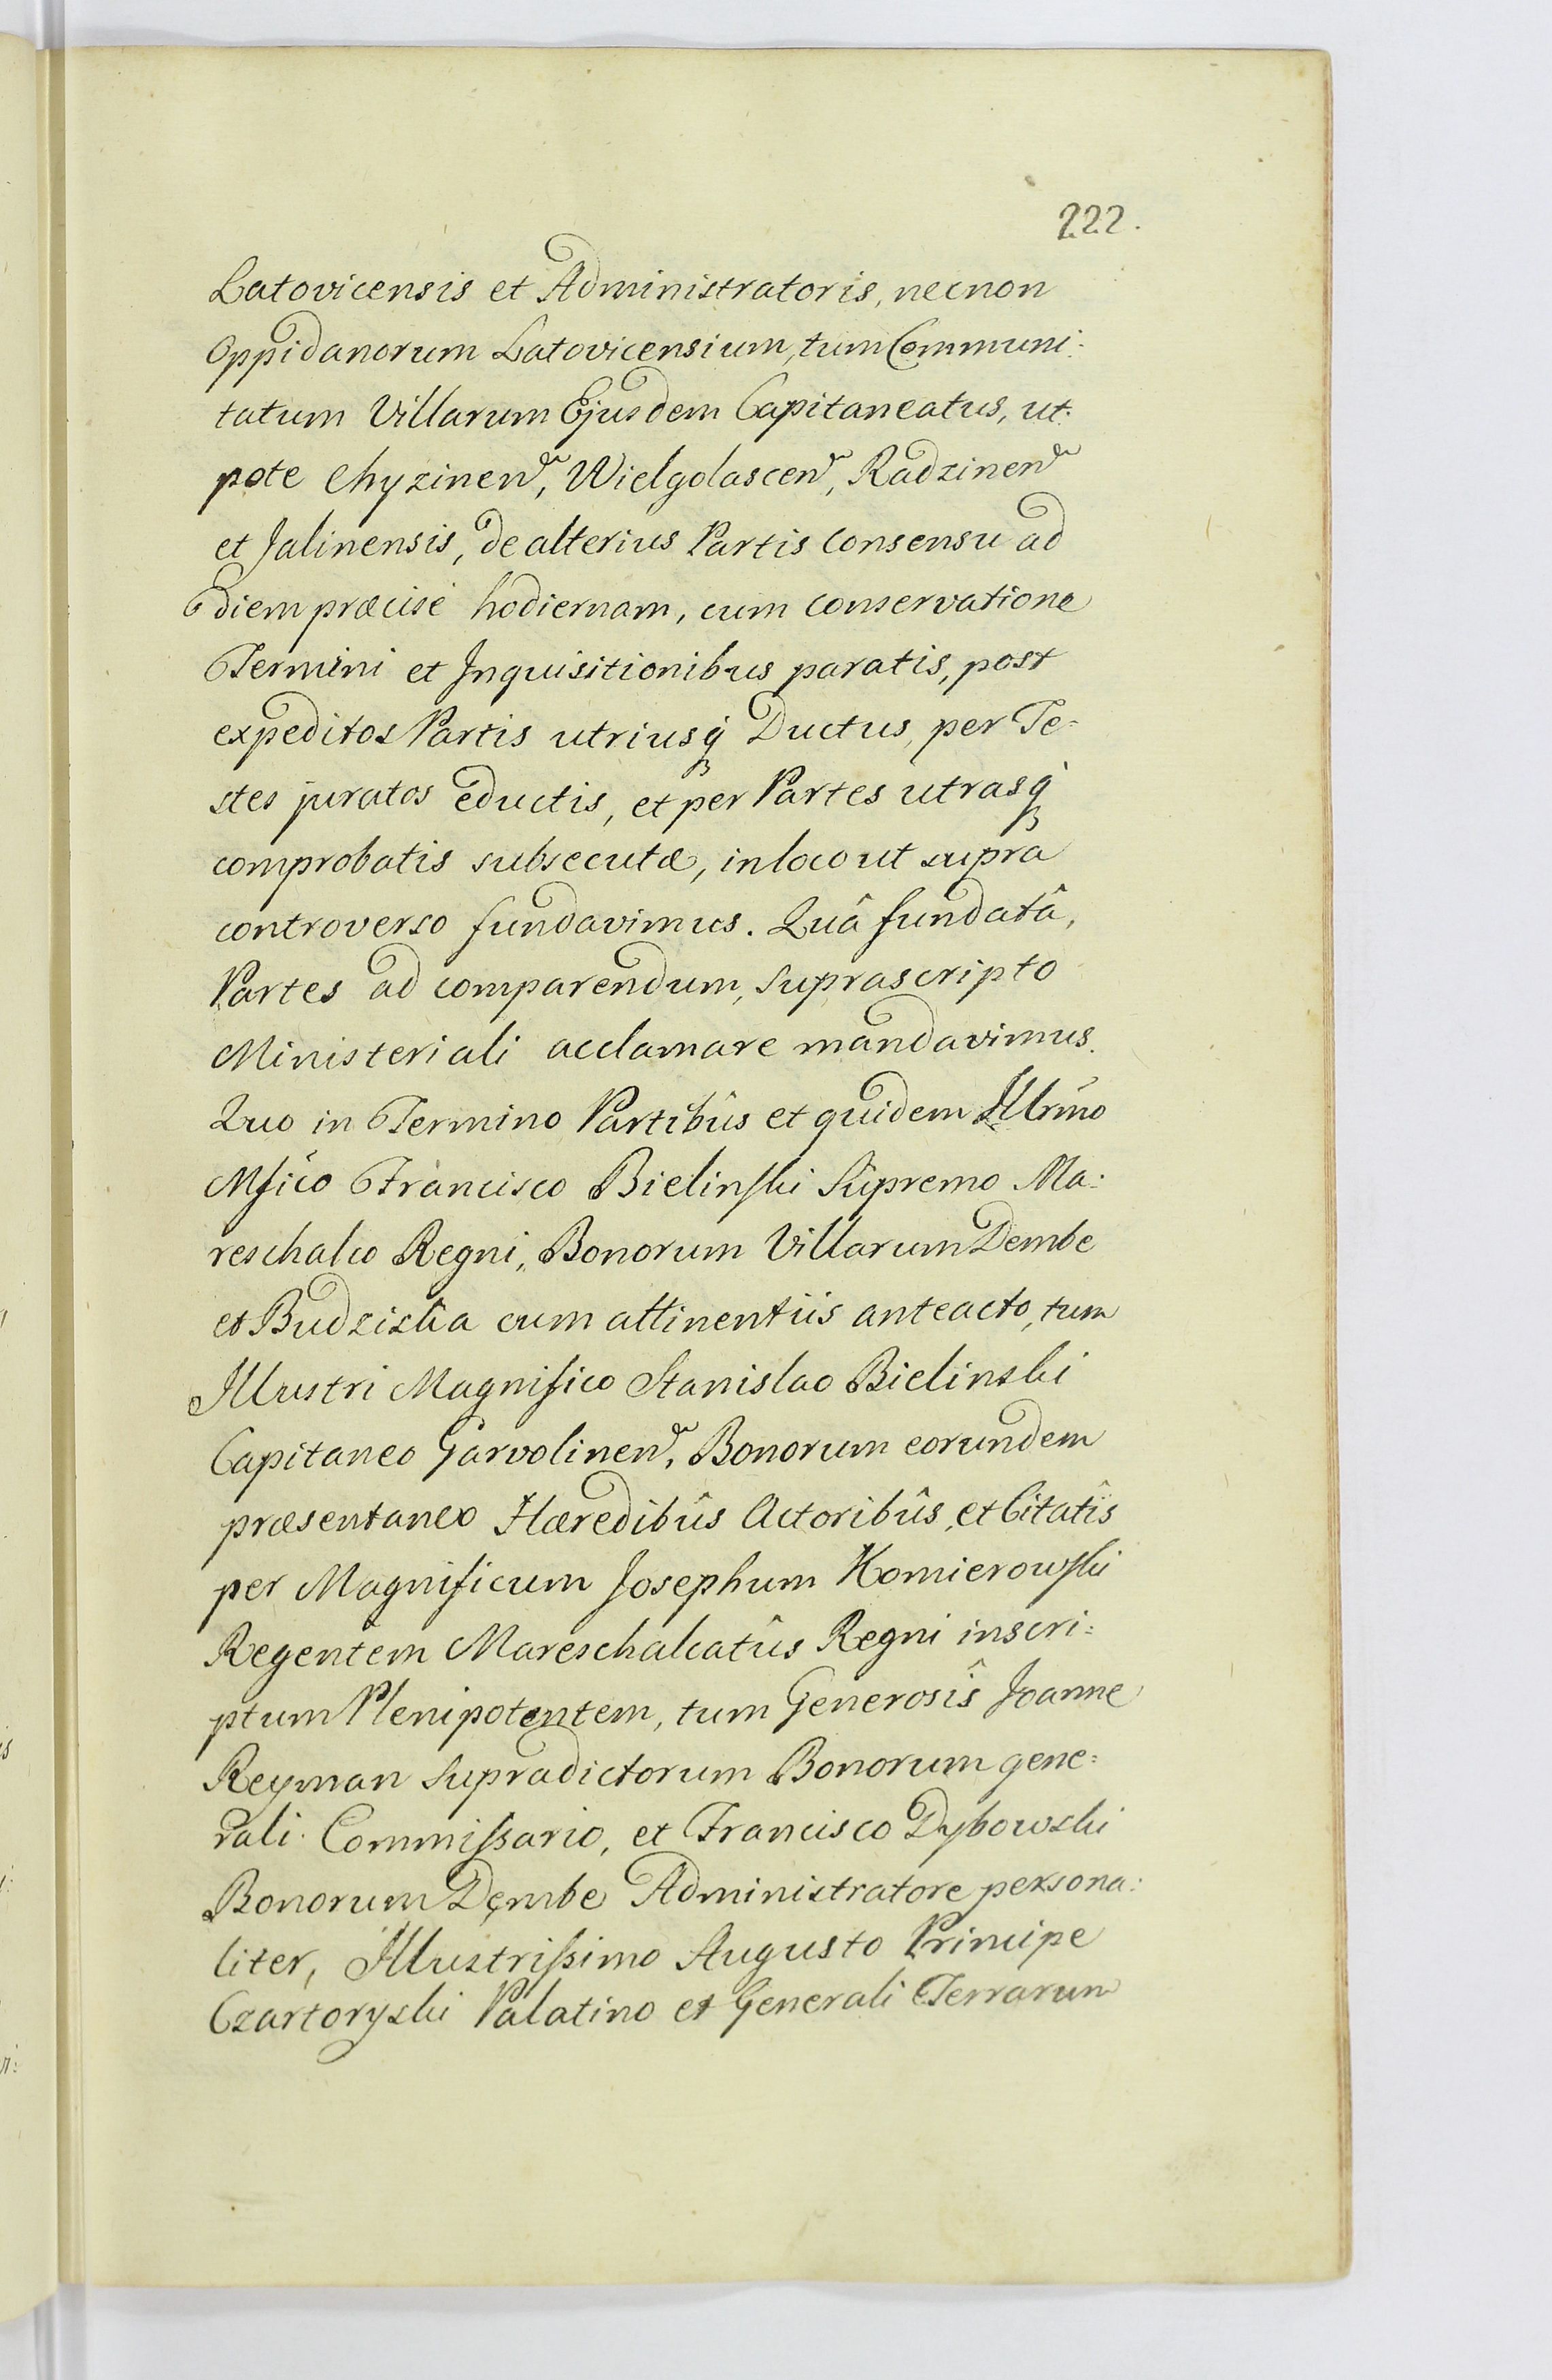 222.
Latovicensis et Administratoris, necnon
Oppidanorum Latovicensium, tum Communi:
tatum Villarum Ejusdem Capitaneatus, ut:
pote Chyzinen, Wielgolascen, Radzinen
et Jalinensis, de alterius Partis Consensu ad
diem præcisè hodiernam, cum conservatione
Termini et Inquisitionibus paratis, post
expeditos Partis utriusq́ Ductus, per Te:
stes juratos eductis, et per Partes utrasq́
comprobatis subsecutæ, in loco ut supra
controverso fundavimus. Quâ fundatâ,
Partes ad comparendum, suprascripto
Ministeriali acclamare mandavimus.
Quo in Termino Partibûs et quidem Illrmo
Mfico Francisco Bielinski Supremo Ma:
reschalco Regni, Bonorum Villarum Dembe
et Budziska cum attinentiis anteacto, tum
Illustri Magnifico Stanislao Bielinski
Capitaneo Garvolinen, Bonorum eorundem
præsentaneo Hæredibûs Actoribûs, et Citatîs
per Magnificum Josephum Komierowski
Regentem Mareschalcatûs Regni inscri:
ptum Plenipotentem, tum Generosîs Joanne
Reyman supradictorum Bonorum gene:
rali Commissario, et Francisco Dybowski
Bonorum Dęmbe Administratore persona:
liter, Illustrissimo Augusto Principe
Czartoryski Palatino et Generali Terrarum